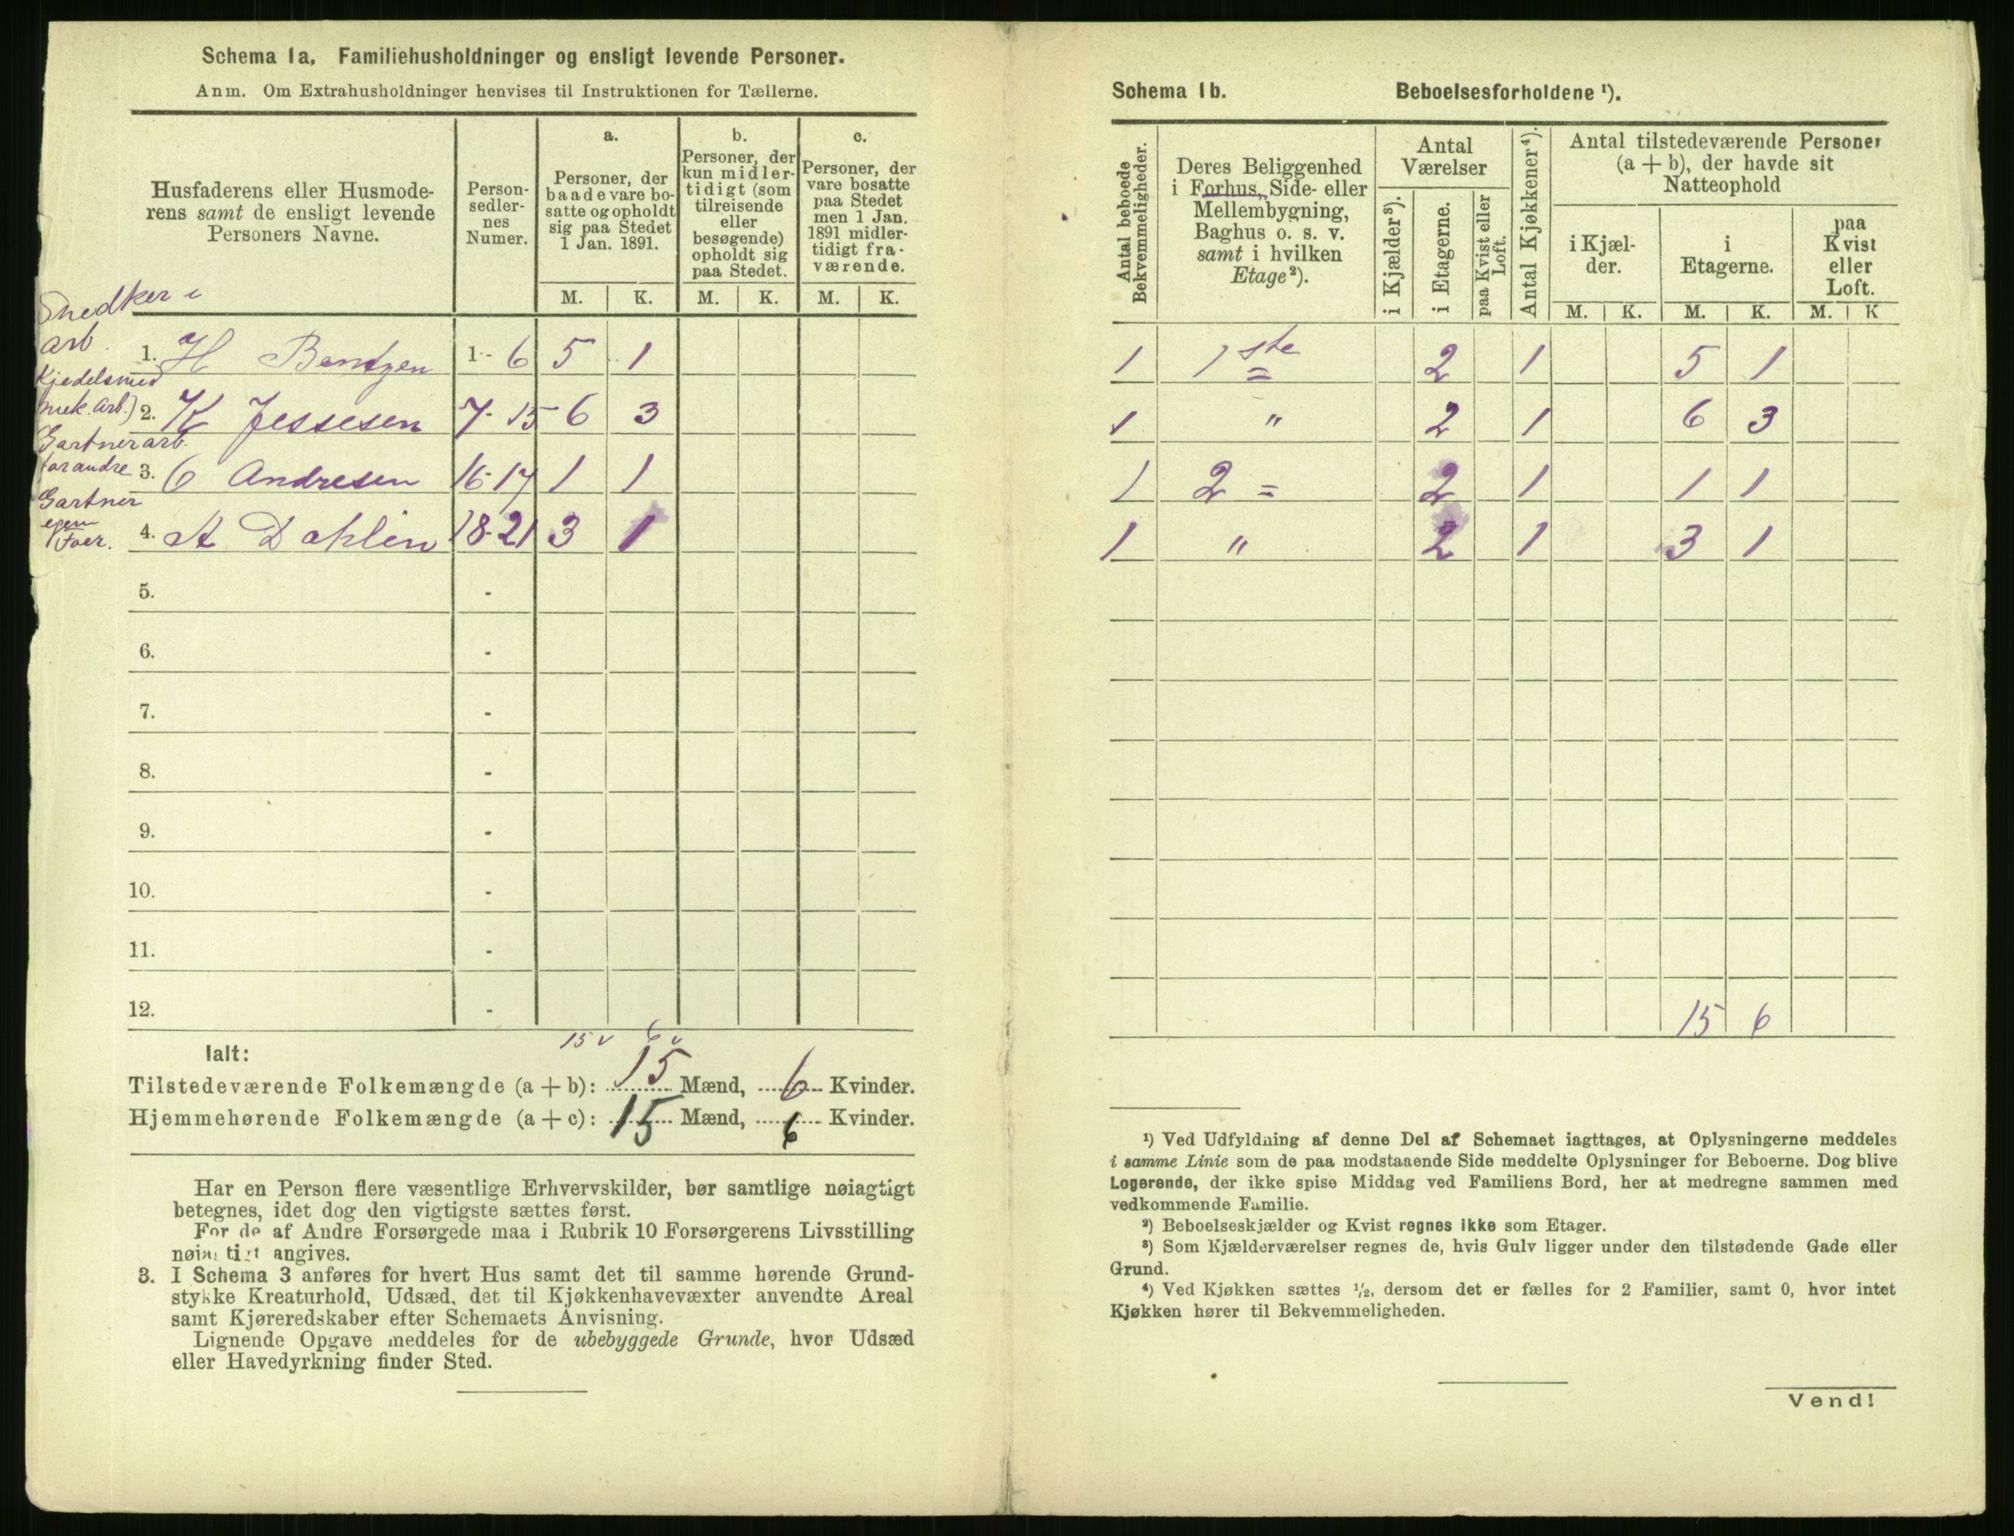 Schema 1a. Familiehusholdninger og ensligt levende Personer.
Anm. Om Extrahusholdninger henvises til Instruktionen for Tællerne.
Husfaderens eller Husmode-
rens samt de ensligt levende
Personers Navne.
Person-
sedler-
nes
Numer.
a.
Personer, der
baade vare bo-
satte og opholdt
sig paa Stedet
1 Jan. 1891.
b.
Personer, der
kun midler-
tidigt (som
tilreisende
eller
besøgende)
opholdt sig
paa Stedet.
c.
Personer, der
vare bosatte
paa Stedet
men 1 Jan.
1891 midler-
tidigt fra-
værende.
M. K. M. K. M. K.
Snedker i
arb.
1. H Bentzen 1-6 5 1
Kjedelsmed
mek. arb.) 2. K Jessesen 7-15 6 3
Gartnerarb.
for andre 3. C Andresen 16-17 1 1
Gartner
egen
4. A Dahlin 18-21 3 1
5. -
6. -
7. -
8. -
9. -
10. -
11. -
12. -
15 v 6 v
Ialt:
Tilstedeværende Folkemængde (a + b): 15 Mænd, 6 Kvinder.
Hjemmehørende Folkemængde (a + c): 15 Mænd, 6 Kvinder.
Har en Person flere væsentlige Erhvervskilder, bør samtlige nøiagtigt
betegnes, idet dog den vigtigste sættes først.
For de af Andre Forsørgede maa i Rubrik 10 Forsørgerens Livsstilling
nøiagtigt angives.
3. I Schema 3 anføres for hvert Hus samt det til samme hørende Grund-
stykke Kreaturhold, Udsæd, det til Kjøkkenhavevæxter anvendte Areal
samt Kjøreredskaber efter Schemaets Anvisning.
Lignende Opgave meddeles for de ubebyggede Grunde, hvor Udsæd
eller Havedyrkning finder Sted.
Schema 1b. Beboelsesforholdene ¹).
Antal beboede
Bekvemmeligheder.
Deres Beliggenhed
i Forhus, Side- eller
Mellembygning,
Baghus o. s. v.
samt i hvilken
Etage²).
Antal
Værelser
i Kjælder³).
i Etagerne.
paa Kvist eller
Loft.
Antal Kjøkkener⁴).
Antal tilstedeværende Personer
(a + b), der havde sit
Natteophold
i Kjæl-
der.
i
Etagerne.
paa
Kvist
eller
Loft.
M. K. M. K. M. K
1 1ste = 2 1 5 1
1 " 2 1 6 3
1 2 = 2 1 1 1
1 " 2 1 3 1
15 6
¹) Ved Udfyldning af denne Del af Schemaet iagttages, at Oplysningerne meddeles
i samme Linie som de paa modstaaende Side meddelte Oplysninger for Beboerne. Dog blive
Logerende, der ikke spise Middag ved Familiens Bord, her at medregne sammen med
vedkommende Familie.
²) Beboelseskjælder og Kvist regnes ikke som Etager.
³) Som Kjælderværelser regnes de, hvis Gulv ligger under den tilstødende Gade eller
Grund.
⁴) Ved Kjøkken sættes ½, dersom det er fælles for 2 Familier, samt 0, hvor intet
Kjøkken hører til Bekvemmeligheden.
Vend!